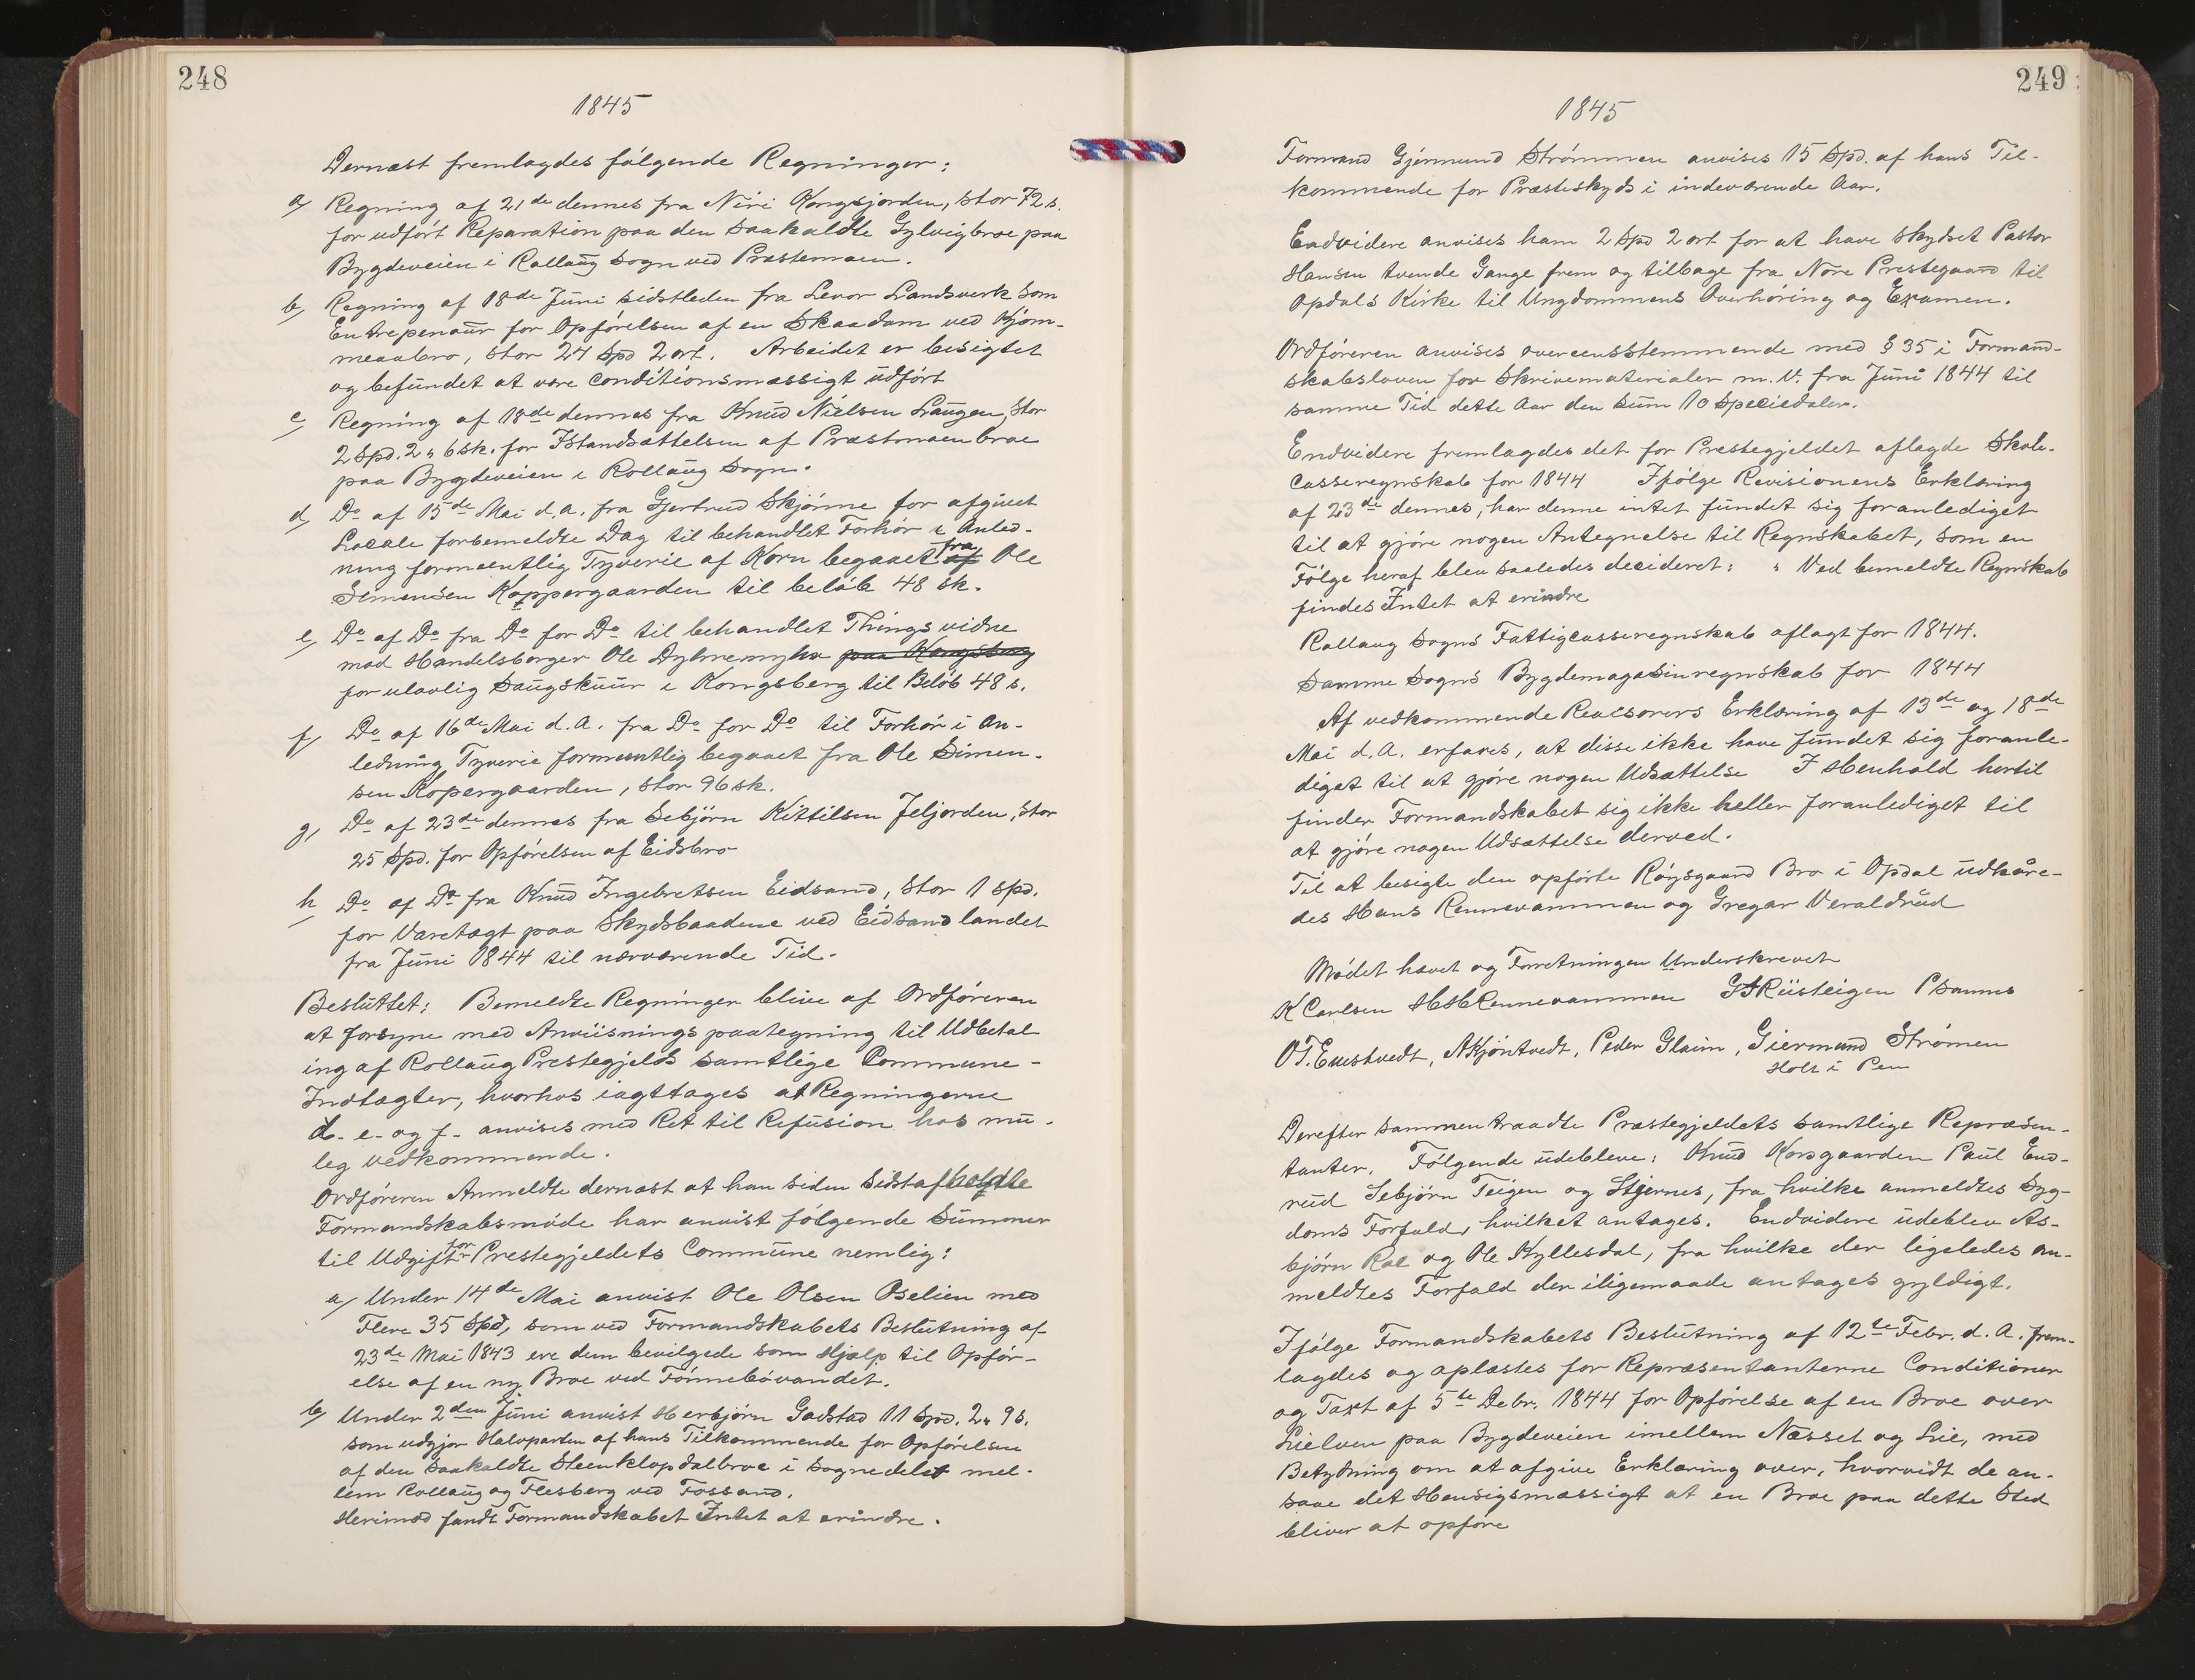 248
1845
Dernæst fremlagdes følgende Regninger:
a/ Regning af 21de dennes fra Niri Kongsjorden, stor 72 s.
for udført Reparation paa den saakaldte Gylvigbroe paa
Bygdeveien i Rollaug Sogn ved Præstemoen.
b/ Regning af 18de Juni sidstleden fra Levor Landsverk som
Entrepenaur for Opførelsen af en Skaadam ved Kjøm-
meaabro, stor 24 Spd 2 ort. Arbeidet er besigtet
og befundet at være conditionsmæssigt udført
c/ Regning af 18de dennes fra Knud Nielsen Laugen, stor
2 Spd. 2 " 6 sk. for Istandsættelsen af Præstmoen broe
paa Bygdeveien i Rollaug Sogn.
d/ Do af 15de Mai d.a. fra Gjertrud Skjønne for afgivet
Locale forbemeldte Dag til behandlet Forhør i Anled-
ning formeentlig Tyverie af Korn begaaet af fra Ole
Simensen Koppergaarden til beløb 48 sk.
e/ Do af Do fra Do for Do til behandlet Things vidne
mod Handelsborger Ole Dylmemyhr paa Kongsberg
for ulovlig Saugskuur i Kongsberg til Beløb 48 s.
f/ Do af 16de Mai d.A. fra Do for Do til Forhør i An-
ledning Tyverie formentlig begaaet fra Ole Simen-
sen Kopergaarden, stor 96 sk.
g/ Do af 23de dennes fra Sebjørn Kittilsen Jeljorden, stor
25 Spd. for Opførelsen af Eidsbro
h/ Do af Do fra Knud Ingebretsen Eidsand, stor 1 spd.
for Varetægt paa Skydsbaadene ved Eidsand landet
fra Juni 1844 til nærværende Tid.
Besluttet: Bemeldte Regninger blive af Ordføreren
at forsyne med Anviisnings paategning til Udbetal
ing af Rollaug Prestegjelds samtlige Commune-
Indtægter, hvorhos iagttages at Regningerne
d- e- og f- anvises med Ret til Refusion hos mu-
leg vedkommende.
Ordføreren Anmeldte dernæst at han siden sidst afholdte
Formandskabsmøde har anvist følgende Summer
til Udgift for Prestegjeldets Commune nemlig:
a/ Under 14de Mai anvist Ole Olsen Øselien med
Flere 35 Spd, som ved Formandskabets Beslutning af
23de Mai 1843 ere dem bevilgede som Hjælp til Opfør-
else af en ny Broe ved Tønnebøvandet.
b/ Under 2den Juni anvist Herbjørn Gadstad 11 Spd. 2 " 9 s.
som udgjør Halvparten af hans Tilkommende for Opførelsen
af den saakaldte Steenklopdalbroe i Sognedelet mel-
lem Rollaug og Flesberg ved Fossand.
Herimod fandt Formandskabet Intet at erindre.
249
1845
Formand Gjermund Strømmen anvises 15 Spd. af hans Til-
kommende for Præsteskyds i indeværende Aar.
Endvidere anvises ham 2 Spd 2 ort for at have Skydset Pastor
Hansen tvende Gange frem og tilbage fra Nore Prestegaard til
Opdals Kirke til Ungdommens Overhøring og Examen.
Ordføreren anvises overeensstemmende med § 35 i Formand-
skabsloven for Skrivematerialer m. V. fra Juni 1844 til
samme Tid dette Aar den Sum 10 Speciedaler.
Endvidere fremlagdes det for Prestegjeldet aflagde Skole-
casseregnskab for 1844 Ifølge Revisionens Erklæring
af 23de dennes, har denne intet fundet sig foranlediget
til at gjøre nogen Antegnelse til Regnskabet, som en
Følge heraf blev saaledes decideret: " Ved bemeldte Regnskab
findes Intet at erindre
Rollaug Sogns Fattigcasseregnskab aflagt for 1844.
Samme Sogns Bygdemagasinregnskab for 1844
Af vedkommende Revisorers Erklæring af 13de og 18de
Mai d.A. erfares, at disse ikke have fundet sig foranle-
diget til at gjøre nogen Udsættelse I Henhold hertil
finder Formandskabet sig ikke heller foranlediget til
at gjøre nogen Udsættelse derved.
Til at besigte den opførte Røysgaard Bro i Opdal udkåre-
des Hans Rennevammen og Gregar Veraldrud
Mødet hævet og Forretningen Underskrevet
K Carlsen HHRennevammen GTRusteigen P Sannes
O T. Evestvedt, AKjøntvedt, Peder Glaim, Giermund Strømen
Holt i Pen
Derefter sammentraadte Præstegjeldets samtlige Repræsen-
tanter. Følgende udebleve: Knud Korsgaarden Paul End-
rud Sebjørn Teigen og Stjernes, fra hvilke anmeldtes Syg-
doms Forfald, hvilket antages. Endvidere udeblev As-
bjørn Roe og Ole Kyllesdal, fra hvilke der ligeledes an-
meldtes Forfald der iligemaade antages gyldigt.
Ifølge Formandskabets Beslutning af 12te Febr. d. A. frem-
lagdes og oplæstes for Repræsentanterne Conditioner
og Taxt af 5te Debr. 1844 for Opførelse af en Broe over
Lielven paa Bygdeveien imellem Næsset og Lie, med
Betydning om at afgive Erklæring over, hvorvidt de an-
saae det Hensigsmæssigt at en Broe paa dette Sted
bliver at opføre